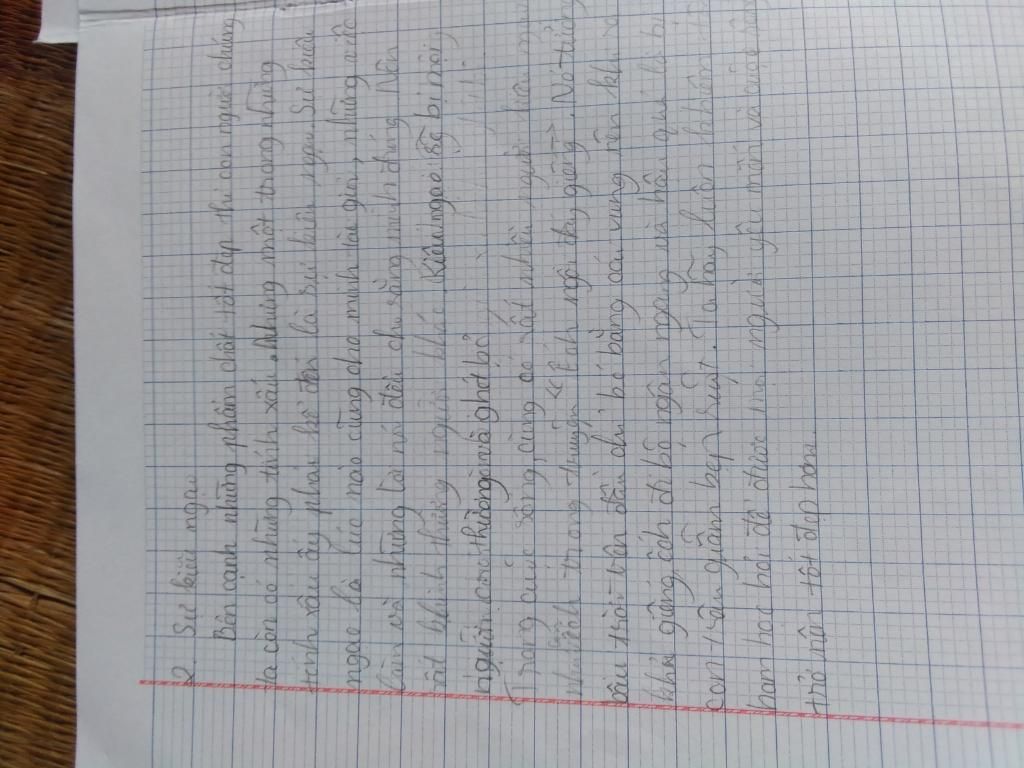 2. Sự kiêu ngạo
Bên cạnh những phẩm chất tốt đẹp thì con người chúng
ta còn có những tính xấu. Nhưng một trong những
tính xấu ấy phải kể đến là sự kiêu ngạo. Sự kiêu
ngạo là lúc nào cũng cho mình tài giỏi, những
lầm và nhưng lại nó đều cho rằng mình đúng. Nên
rất khinh thường người khác. Kiêu ngạo sẽ bị mọi
người coi thường và ghét bỏ.
Trong cuộc sống, cũng có rất nhiều người kiêu
trong truyện << Ếch ngồi đáy giếng >>. Nó tưởng
bầu trời vẫn chỉ bé bằng cái vung nên khi ra
khỏi giếng ếch đi bộ nghênh ngang và hậu quả là bị
con trâu giẫm bẹp. Ta hãy luôn khiêm
học hỏi để được mọi người yêu mến và cuộc sống
trở nên tốt đẹp hơn.